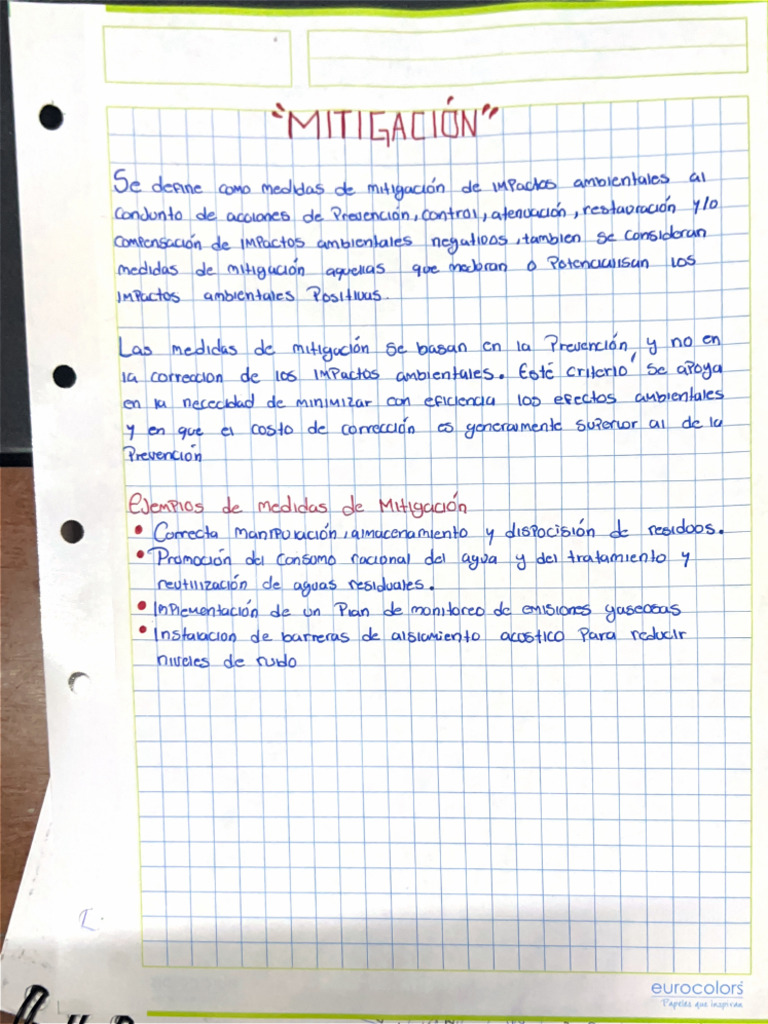 "MITIGACIÓN"
Se define como medidas de mitigación de impactos ambientales al
conjunto de acciones de Prevención, control, atenuación, restauración y/o
compensación de impactos ambientales negativos, tambien se consideran
medidas de mitigación aquellas que mejoran o Potencialisan los
impactos ambientales Positivas.
Las medidas de mitigación se basan en la Prevención, y no en
la correccion de los impactos ambientales. Esté criterio, se apoya
en la nececidad de minimizar con eficiencia los efectos ambientales
y en que el costo de corrección es generalmente superior al de la
Prevención
Ejemplos de medidas de Mitigación
• Correcta manipulación, almacenamiento y dispocisión de residuos.
• Promoción del consomo racional del agua y del tratamiento y
reutilización de aguas residuales.
• Inplementación de un Plan de monitoreo de emisiones gaseosas
• Instalacion de barreras de aislamiento acostico Para reducir
niveles de ruido
eurocolors
Papeles que inspiran